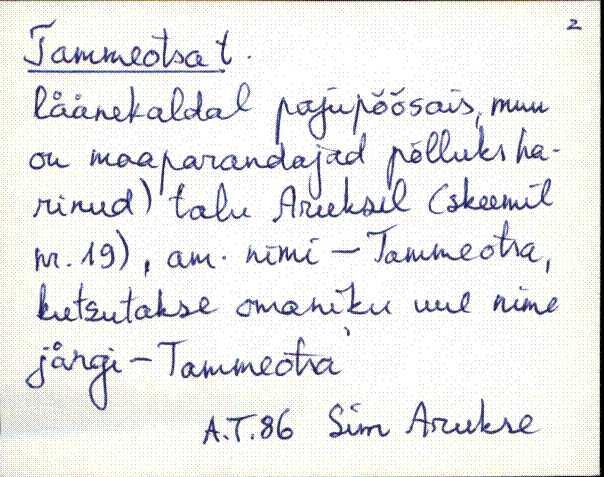 2
Tammeotsa t.
läänekaldal pajupõõsais, muu
on maaparandajad põlluks ha-
rinud) talu Aruksel (skeemil
nr. 19), am. nimi - Tammeotsa,
kutsutakse omaniku uue nime
järgi - Tammeotsa
A.T. 86 Sim Arukse